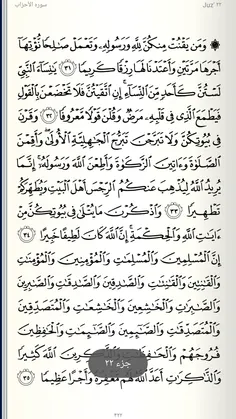 سورة الأحزاب
Juz' ٢٢
۞ وَمَن يَقْنُتْ مِنكُنَّ لِلَّهِ وَرَسُولِهِۦ وَتَعْمَلْ صَٰلِحًا نُّؤْتِهَآ
أَجْرَهَا مَرَّتَيْنِ وَأَعْتَدْنَا لَهَا رِزْقًا كَرِيمًا ٣١ يَٰنِسَآءَ ٱلنَّبِىِّ
لَسْتُنَّ كَأَحَدٍ مِّنَ ٱلنِّسَآءِ ۚ إِنِ ٱتَّقَيْتُنَّ فَلَا تَخْضَعْنَ بِٱلْقَوْلِ
فَيَطْمَعَ ٱلَّذِى فِى قَلْبِهِۦ مَرَضٌ وَقُلْنَ قَوْلًا مَّعْرُوفًا ٣٢ وَقَرْنَ
فِى بُيُوتِكُنَّ وَلَا تَبَرَّجْنَ تَبَرُّجَ ٱلْجَٰهِلِيَّةِ ٱلْأُولَىٰ ۖ وَأَقِمْنَ
ٱلصَّلَوٰةَ وَءَاتِينَ ٱلزَّكَوٰةَ وَأَطِعْنَ ٱللَّهَ وَرَسُولَهُۥٓ ۚ إِنَّمَا
يُرِيدُ ٱللَّهُ لِيُذْهِبَ عَنكُمُ ٱلرِّجْسَ أَهْلَ ٱلْبَيْتِ وَيُطَهِّرَكُمْ
تَطْهِيرًا ٣٣ وَٱذْكُرْنَ مَا يُتْلَىٰ فِى بُيُوتِكُنَّ مِنْ
ءَايَٰتِ ٱللَّهِ وَٱلْحِكْمَةِ ۚ إِنَّ ٱللَّهَ كَانَ لَطِيفًا خَبِيرًا ٣٤
إِنَّ ٱلْمُسْلِمِينَ وَٱلْمُسْلِمَٰتِ وَٱلْمُؤْمِنِينَ وَٱلْمُؤْمِنَٰتِ
وَٱلْقَٰنِتِينَ وَٱلْقَٰنِتَٰتِ وَٱلصَّٰدِقِينَ وَٱلصَّٰدِقَٰتِ وَٱلصَّٰبِرِينَ
وَٱلصَّٰبِرَٰتِ وَٱلْخَٰشِعِينَ وَٱلْخَٰشِعَٰتِ وَٱلْمُتَصَدِّقِينَ
وَٱلْمُتَصَدِّقَٰتِ وَٱلصَّٰٓئِمِينَ وَٱلصَّٰٓئِمَٰتِ وَٱلْحَٰفِظِينَ
فُرُوجَهُمْ وَٱلْحَٰفِظَٰتِ ٱللَّهَ كَثِيرًا
وَٱلذَّٰكِرَٰتِ أَعَدَّ ٱللَّهُ لَهُم مَّغْفِرَةً وَأَجْرًا عَظِيمًا ٣٥
جزء ٢٢